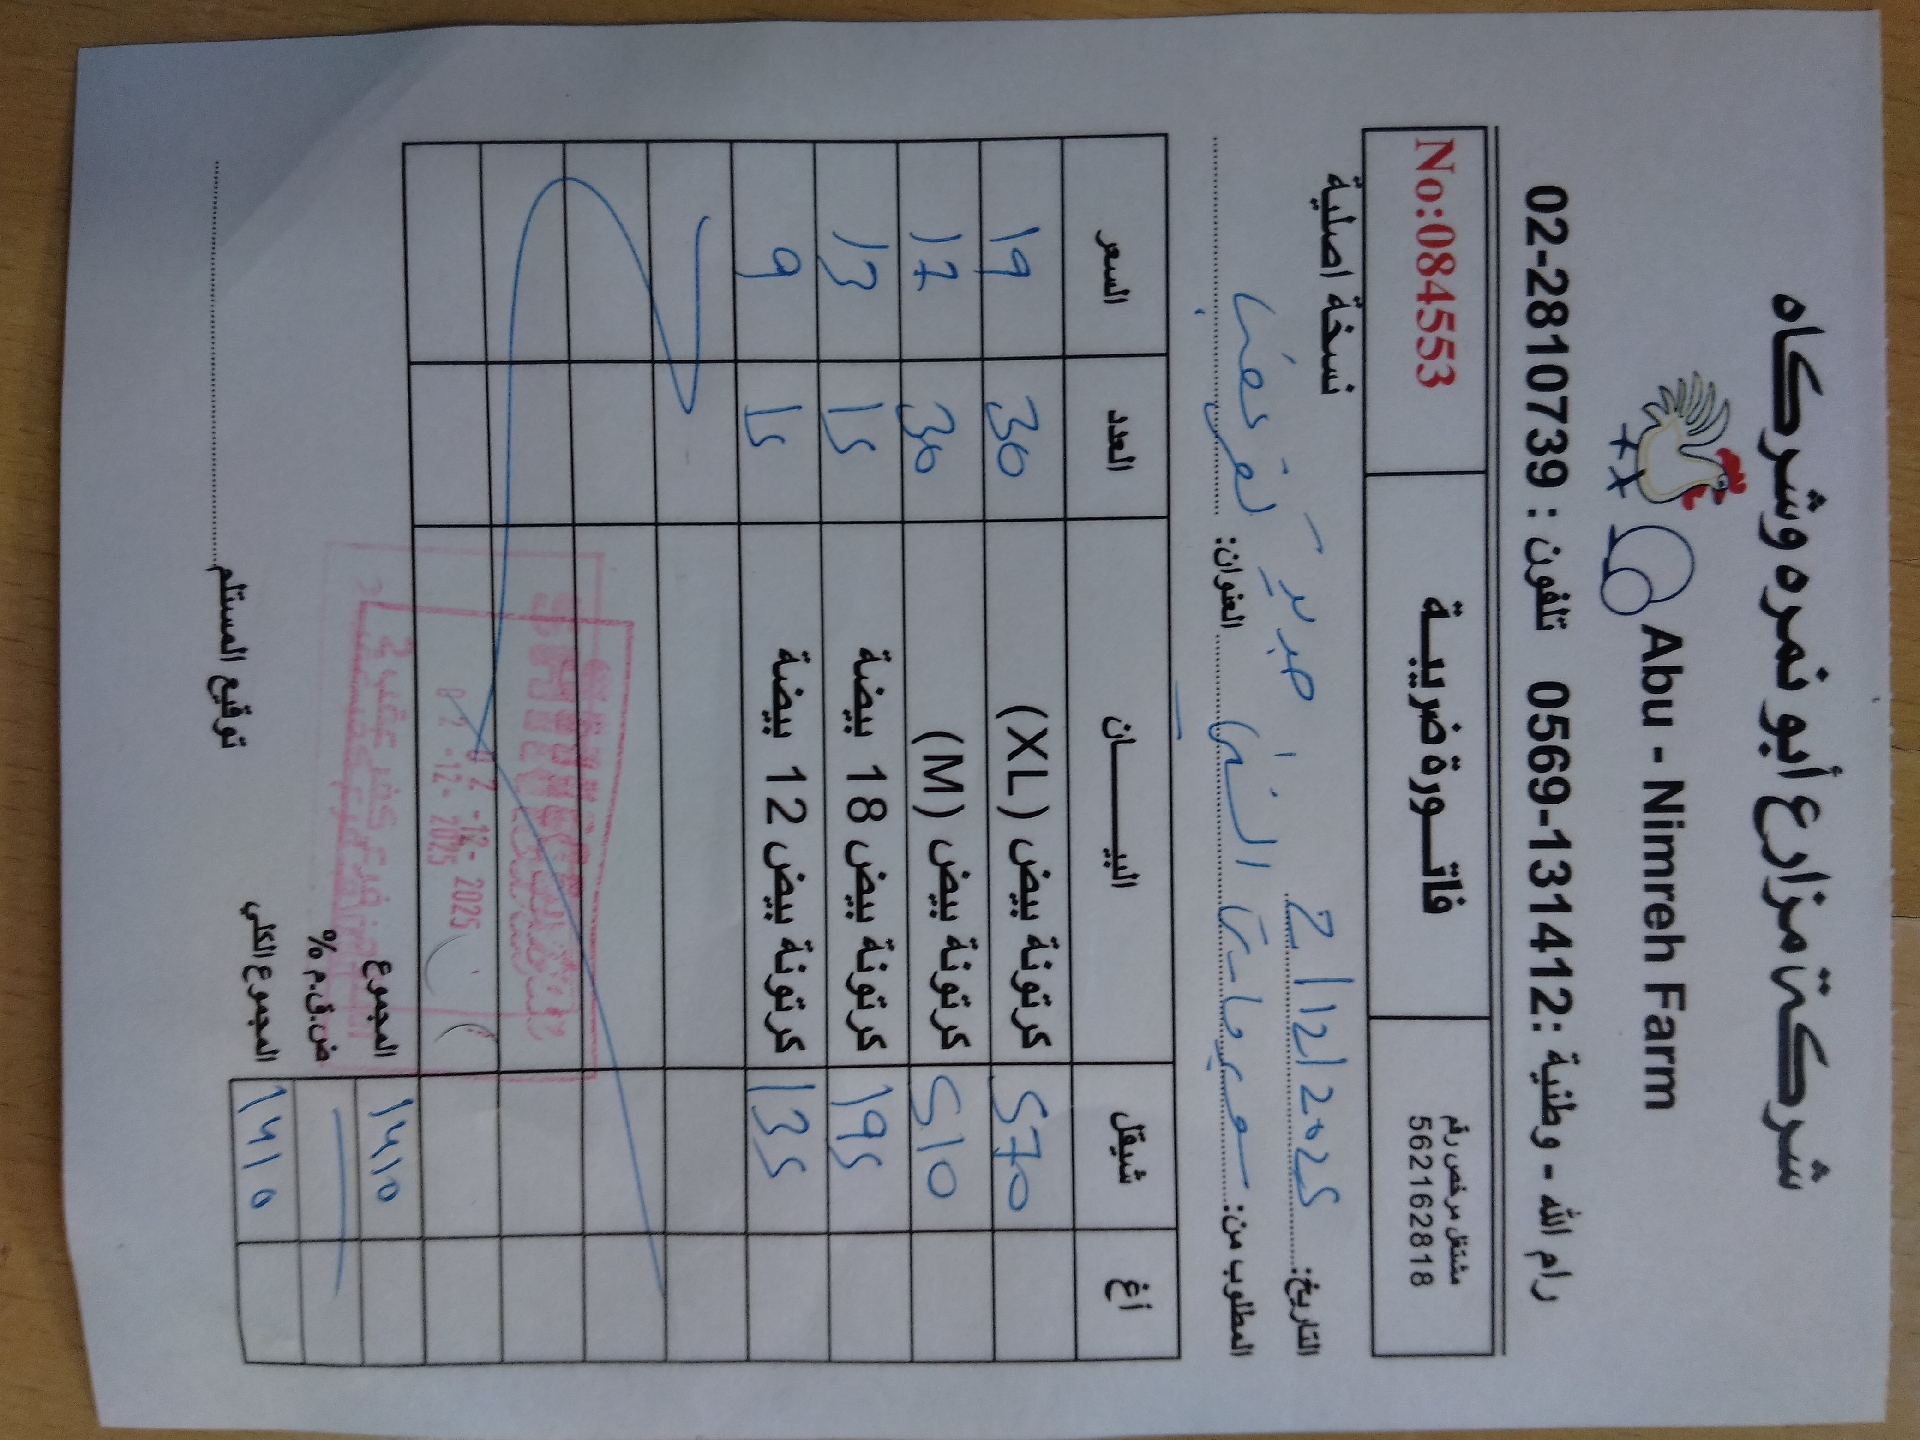 شركة مزارع أبو نمره وشركاه
Abu - Nimreh Farm
رام الله - وطنية: 0569-131412 تلفون : 02-2810739
مشتغل مرخص رقم
562162818
فاتـــورة ضريبـــة
No:084553
التاريخ: 2/12/2025
نسخة اصلية
المطلوب من: سوبر ماركت
العنوان:
أغ شيقل البيـــــان العدد السعر
570 كرتونة بيض (XL) 30 19
510 كرتونة بيض (M) 30 17
195 كرتونة بيض 18 بيضة 15 13
135 كرتونة بيض 12 بيضة 15 9
02 -12- 2025
02 -12- 2025
المجموع 1410
ض.ق.م %
المجموع الكلي 1410
توقيع المستلم